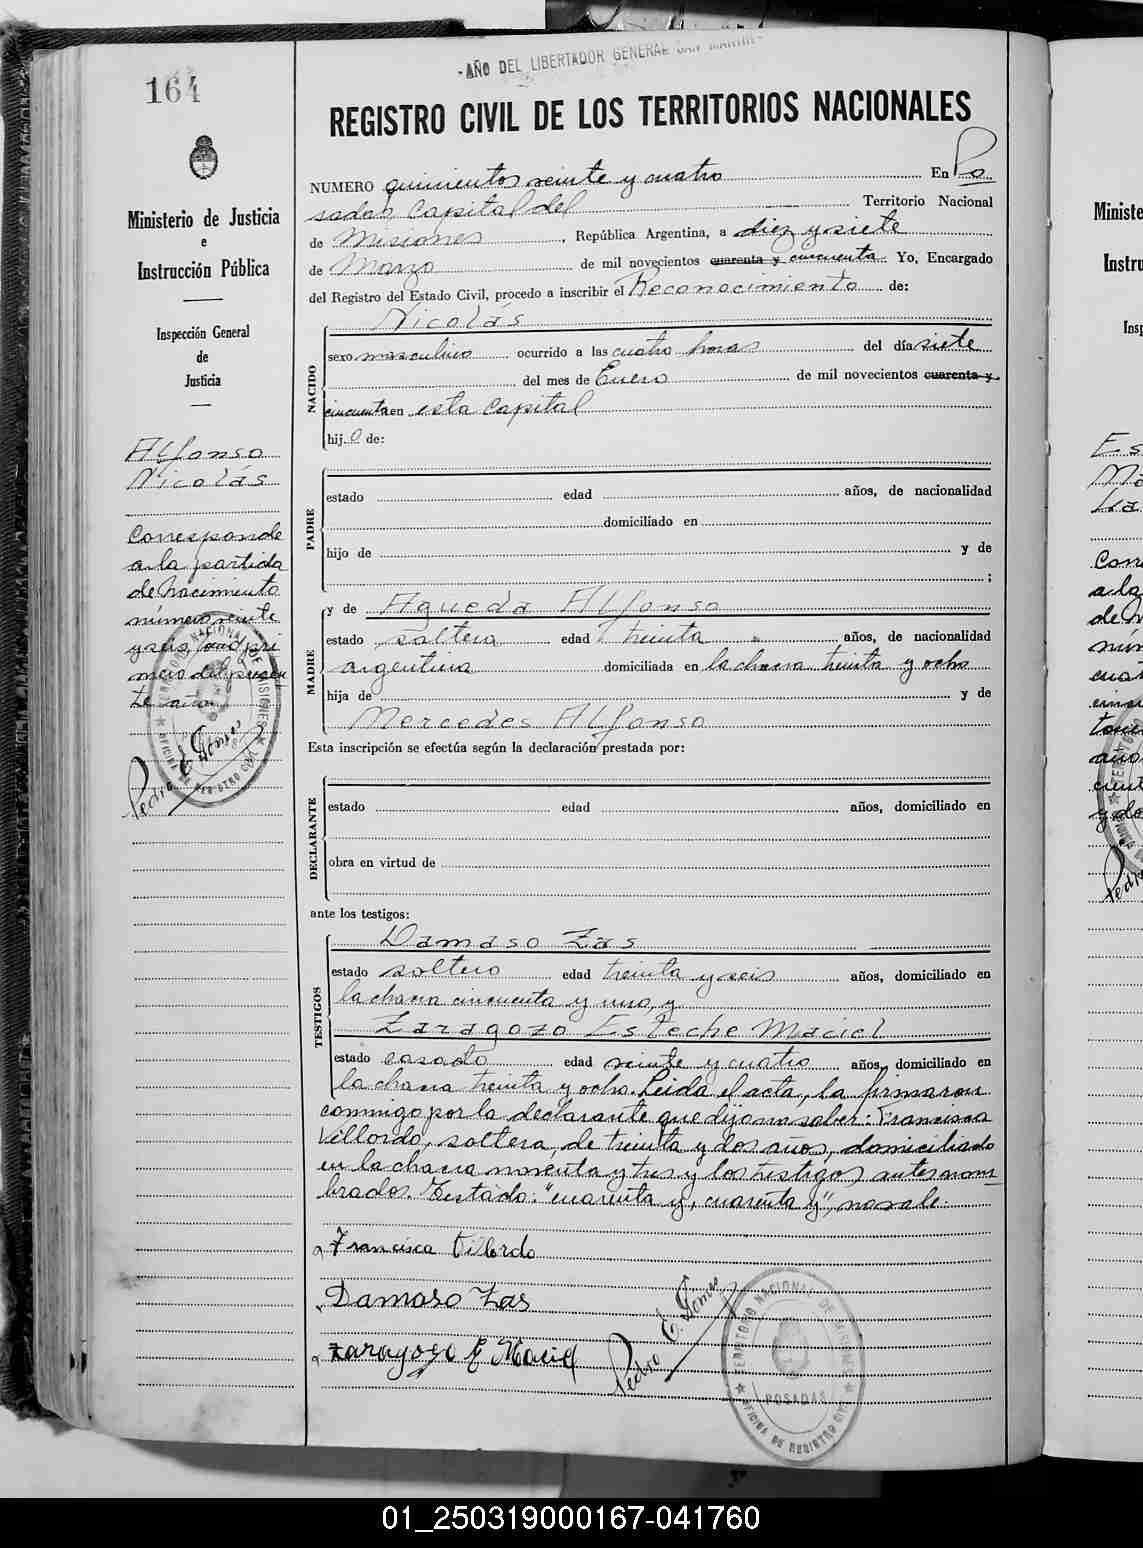 164
-AÑO DEL LIBERTADOR GENERAL SAN MARTIN-
REGISTRO CIVIL DE LOS TERRITORIOS NACIONALES
Ministerio de Justicia
e
Instrucción Pública
Inspección General
de
Justicia
Alfonso
Nicolás
Corresponde
a la partida
de Nacimiento
número veinte
y seis, tomo pri
mero del presen
te año.
Pedro E. Gomes
NUMERO quinientos veinte y cuatro En Po
sadas Capital del Territorio Nacional
de Misiones, República Argentina, a diez y siete
de Marzo de mil novecientos cuarenta y cincuenta. Yo, Encargado
del Registro del Estado Civil, procedo a inscribir el Reconocimiento de:
Nicolás
NACIDO
sexo masculino ocurrido a las cuatro horas del día siete
del mes de Enero de mil novecientos cuarenta y
cincuenta en esta Capital
hijo de:
PADRE
estado edad años, de nacionalidad
domiciliado en
hijo de y de
;
MADRE
y de Agueda Alfonso
estado soltera edad treinta años, de nacionalidad
argentina domiciliada en la chacra treinta y ocho
hija de y de
Mercedes Alfonso
Esta inscripción se efectúa según la declaración prestada por:
DECLARANTE
estado edad años, domiciliado en
obra en virtud de
ante los testigos:
TESTIGOS
Damaso Zas
estado soltero edad treinta y seis años, domiciliado en
la chacra cincuenta y uno, y
Zaragozo Esteche Maciel
estado casado edad veinte y cuatro años, domiciliado en
la chacra treinta y ocho. Leida el acta, la firmaron
conmigo por la declarante que dijo no saber: Francisca
Villordo, soltera, de treinta y dos años, domiciliado
en la chacra noventa y tres y los testigos antes nom
brados. Testado: "cuarenta y, cuarenta y", no vale.
Francisca Villordo
Damaso Zas
Zaragozo E Maciel
Pedro E. Gomes
TERRITORIO NACIONAL DE MISIONES
POSADAS
OFICINA DE REGISTRO CIVIL
01_250319000167-041760